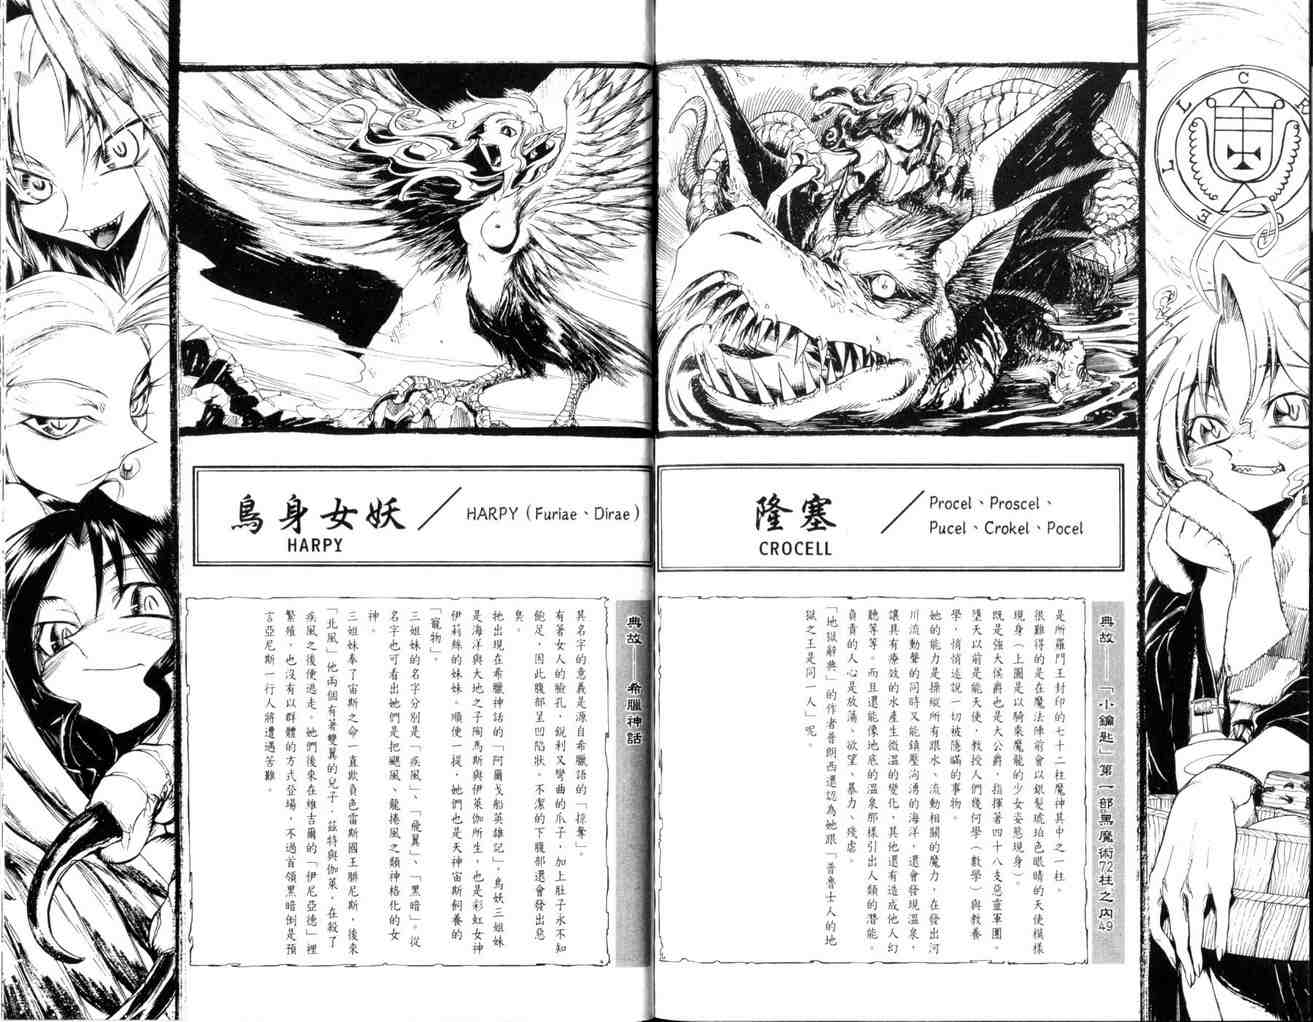 隆塞
CROCELL
Procel、Proscel、
Pucel、Crokel、Pocel
典故——「小鑰匙」第一部黑魔術72柱之內49
是所羅門王封印的七十二柱魔神其中之一柱。
很難得的是在魔法陣前會以銀髮琥珀色眼睛的天使模樣
現身（上圖是以騎乘魔龍的少女姿態現身）。
既是強大侯爵也是大公爵，指揮著四十八支惡靈軍團。
墮天以前是能天使，教授人們幾何學（數學）與教養
學，悄悄述說一切被隱瞞的事物。
她的能力是操縱所有跟水、流動相關的魔力，在發出河
川流動聲的同時又能鎮壓洶湧的海洋，還會發現溫泉，
讓具有療效的水產生微溫的變化，其他還有造成他人幻
聽等等。而且還能像地底的溫泉那樣引出人類的潛能。
負責的人心是放蕩、欲望、暴力、殘虐。
「地獄辭典」的作者普朗西還認為她跟「普魯士人的地
獄之王是同一人」呢。
C
L
L
E
C
鳥身女妖
HARPY
HARPY（Furiae、Dirae）
典故——希臘神話
其名字的意義是源自希臘語的「掠奪」。
有著女人的臉孔，銳利又彎曲的爪子，加上肚子永不知
飽足，因此腹部呈凹陷狀。不潔的下腹部還會發出惡
臭。
牠出現在希臘神話的「阿爾戈船英雄記」，鳥妖三姐妹
是海洋與大地之子陶馬斯與伊萊伽所生，也是彩虹女神
伊莉絲的妹妹。順便一提，她們也是天神宙斯飼養的
「寵物」。
三姐妹的名字分別是「疾風」、「飛翼」、「黑暗」。從
名字也可看出她們是把颶風、龍捲風之類神格化的女
神。
三姐妹奉了宙斯之命一直欺負色雷斯國王腓尼斯，後來
「北風」他兩個有著雙翼的兒子，茲特與伽萊，在殺了
疾風之後便逃走。她們後來在維吉爾的「伊尼亞德」裡
繁殖，也沒有以群體的方式登場，不過首領黑暗倒是預
言亞尼斯一行人將遭遇苦難。